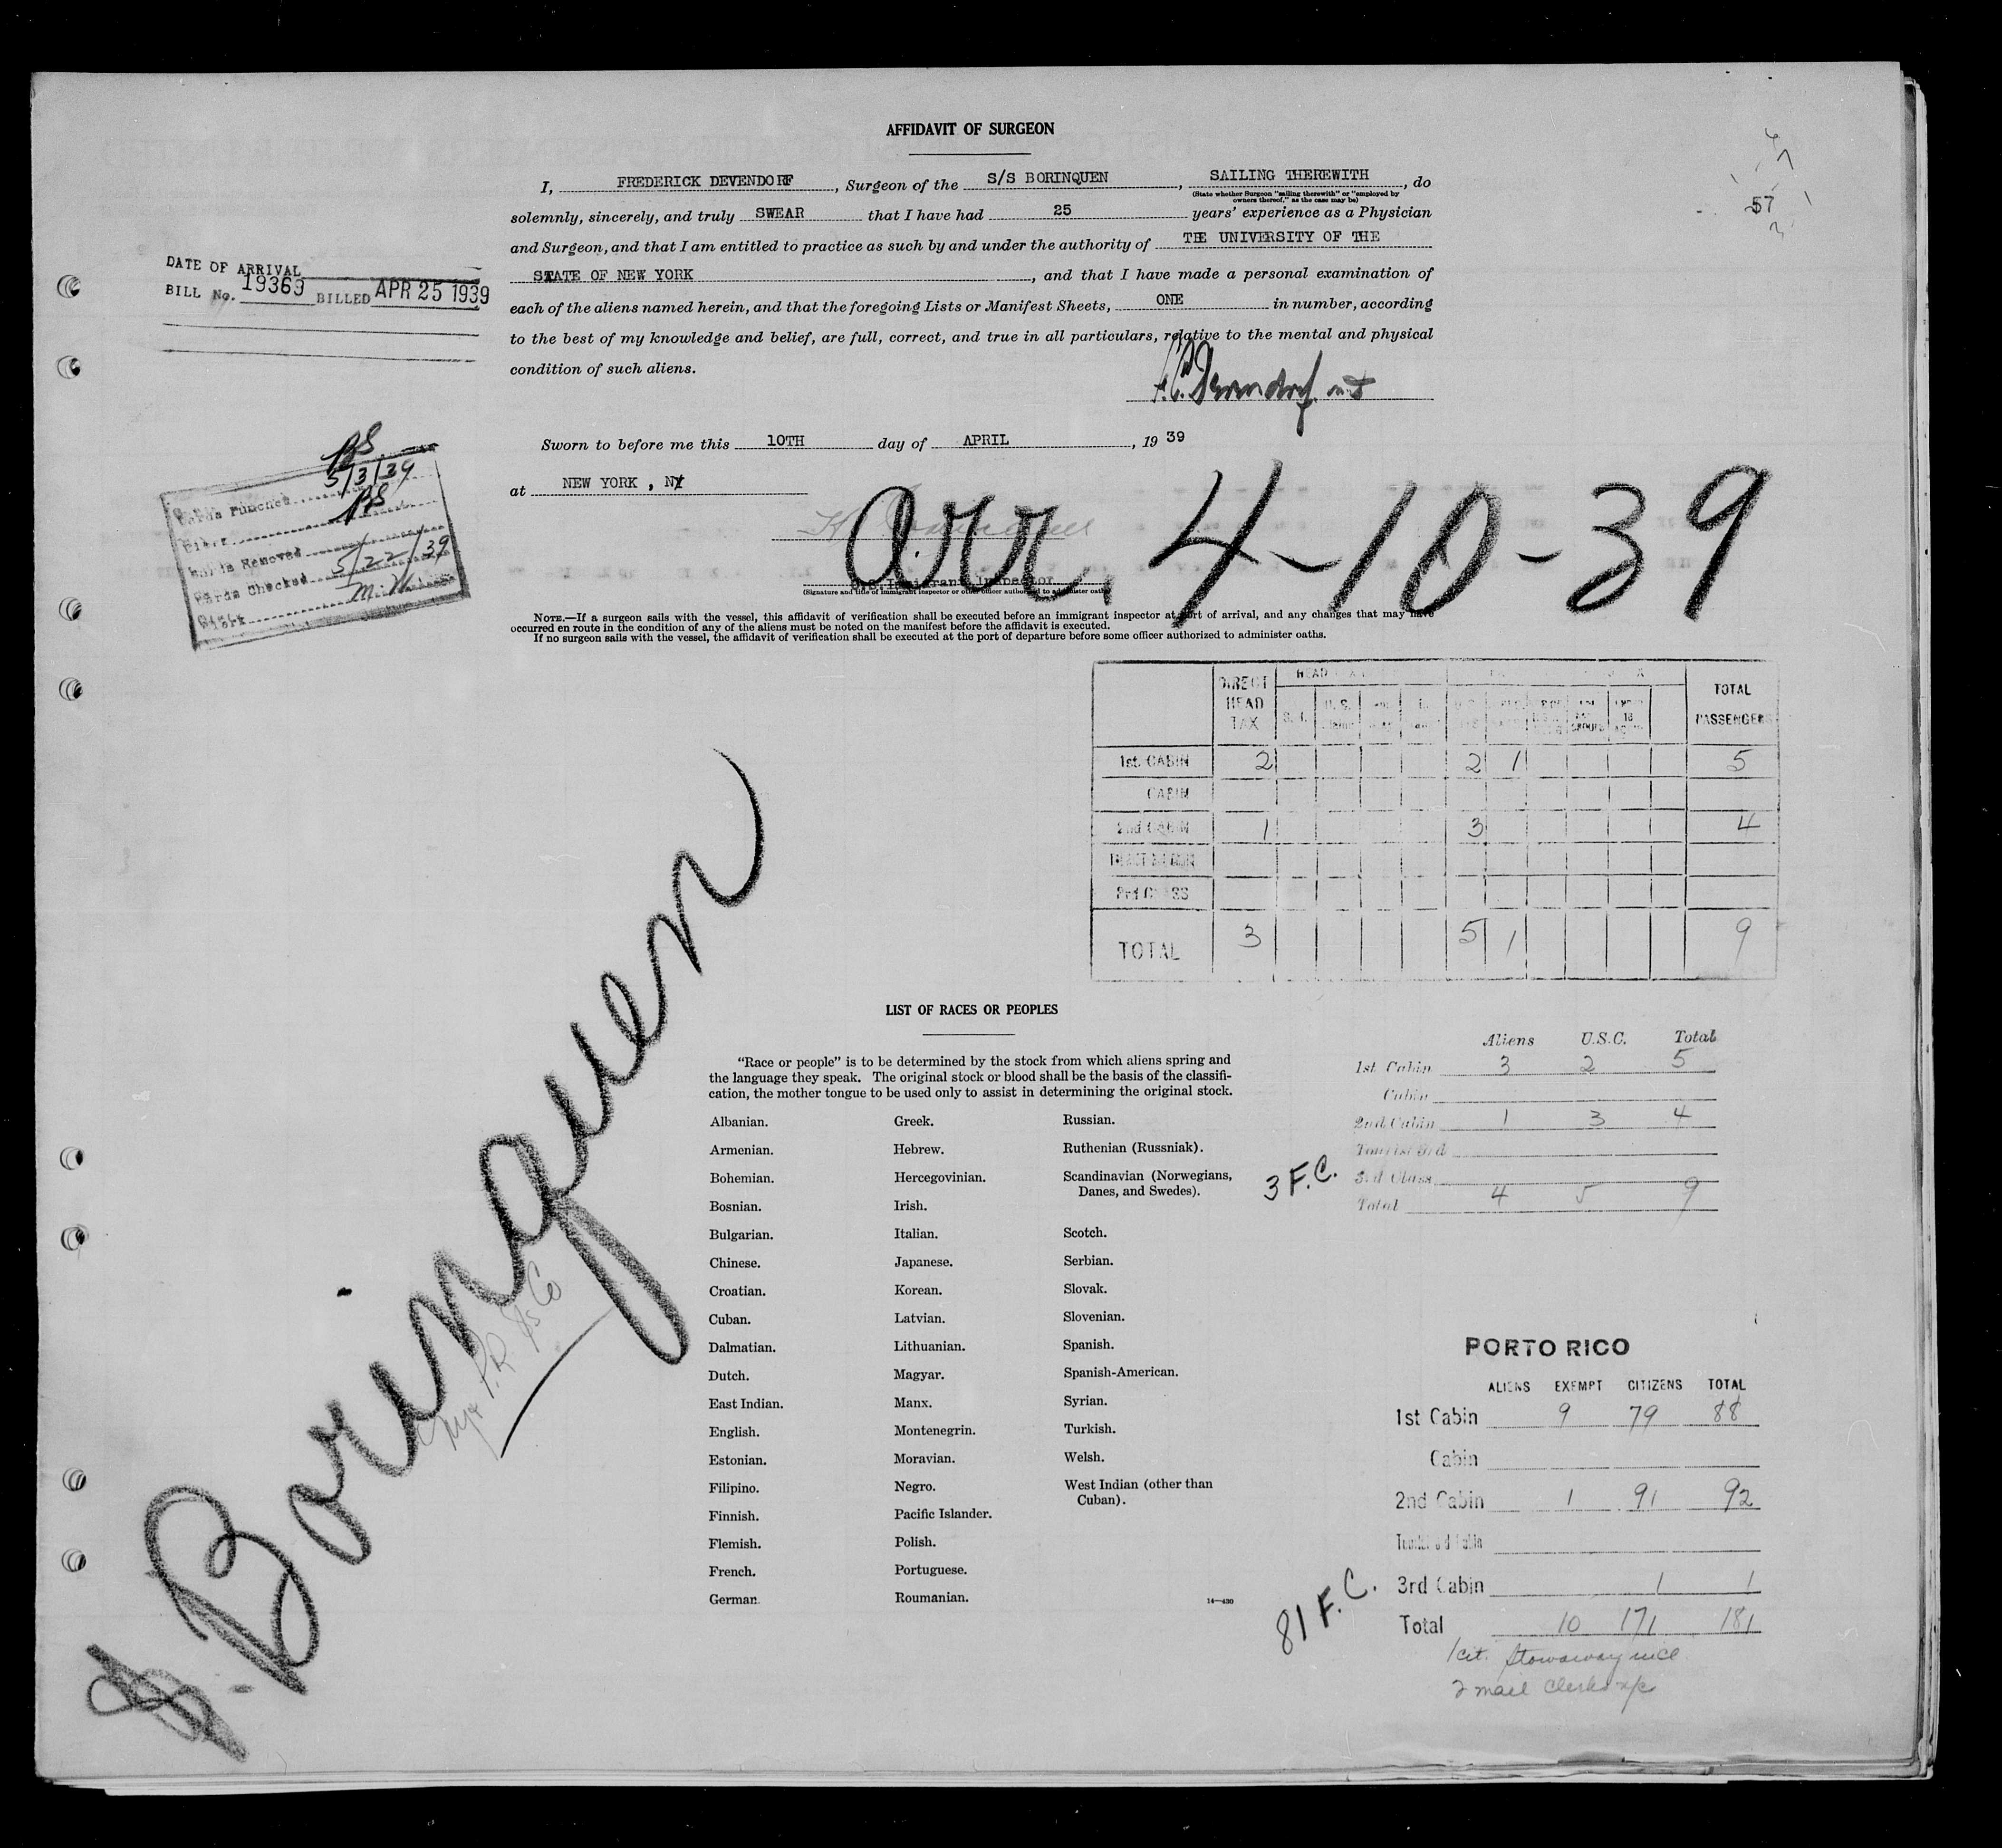 AFFIDAVIT OF SURGEON
I, FREDERICK DEVENDORF, Surgeon of the S/S BORINQUEN, SAILING THEREWITH, do
(State whether Surgeon "sailing therewith" or "employed by
owners thereof," as the case may be)
solemnly, sincerely, and truly SWEAR that I have had 25 years' experience as a Physician
and Surgeon, and that I am entitled to practice as such by and under the authority of THE UNIVERSITY OF THE
STATE OF NEW YORK, and that I have made a personal examination of
each of the aliens named herein, and that the foregoing Lists or Manifest Sheets, ONE in number, according
to the best of my knowledge and belief, are full, correct, and true in all particulars, relative to the mental and physical
condition of such aliens.
57
DATE OF ARRIVAL
BILL No. 19369 BILLED APR 25 1939
Sworn to before me this 10TH day of APRIL, 19 39
at NEW YORK, NY
arr. 4-10-39
U.S. Immigrant Inspector
(Signature and title of immigrant inspector or other officer authorized to administer oaths)
Cards Punched 5/3/39
Clerk
Cards Removed
Cards Checked 5/22/39
Clerk
NOTE.—If a surgeon sails with the vessel, this affidavit of verification shall be executed before an immigrant inspector at port of arrival, and any changes that may have
occurred en route in the condition of any of the aliens must be noted on the manifest before the affidavit is executed.
If no surgeon sails with the vessel, the affidavit of verification shall be executed at the port of departure before some officer authorized to administer oaths.
DIRECT HEAD TAX
TOTAL PASSENGERS
1st. CABIN 2 2 1 5
CABIN
2nd CABIN 1 3 4
3rd CLASS
TOTAL 3 5 1 9
S. Borinquen
LIST OF RACES OR PEOPLES
"Race or people" is to be determined by the stock from which aliens spring and
the language they speak. The original stock or blood shall be the basis of the classifi-
cation, the mother tongue to be used only to assist in determining the original stock.
Albanian.
Armenian.
Bohemian.
Bosnian.
Bulgarian.
Chinese.
Croatian.
Cuban.
Dalmatian.
Dutch.
East Indian.
English.
Estonian.
Filipino.
Finnish.
Flemish.
French.
German.
Greek.
Hebrew.
Hercegovinian.
Irish.
Italian.
Japanese.
Korean.
Latvian.
Lithuanian.
Magyar.
Manx.
Montenegrin.
Moravian.
Negro.
Pacific Islander.
Polish.
Portuguese.
Roumanian.
Russian.
Ruthenian (Russniak).
Scandinavian (Norwegians,
Danes, and Swedes).
Scotch.
Serbian.
Slovak.
Slovenian.
Spanish.
Spanish-American.
Syrian.
Turkish.
Welsh.
West Indian (other than
Cuban).
14—430
Aliens U.S.C. Total
1st Cabin 3 2 5
Cabin
2nd Cabin 1 3 4
Tourist 3rd
3rd Class
Total 4 5 9
3 F.C.
PORTO RICO
ALIENS EXEMPT CITIZENS TOTAL
1st Cabin 9 79 88
Cabin
2nd Cabin 1 91 92
3rd Cabin 1 1
Total 10 171 181
81 F.C.
1 cit. Stowaway
2 mail Clerks